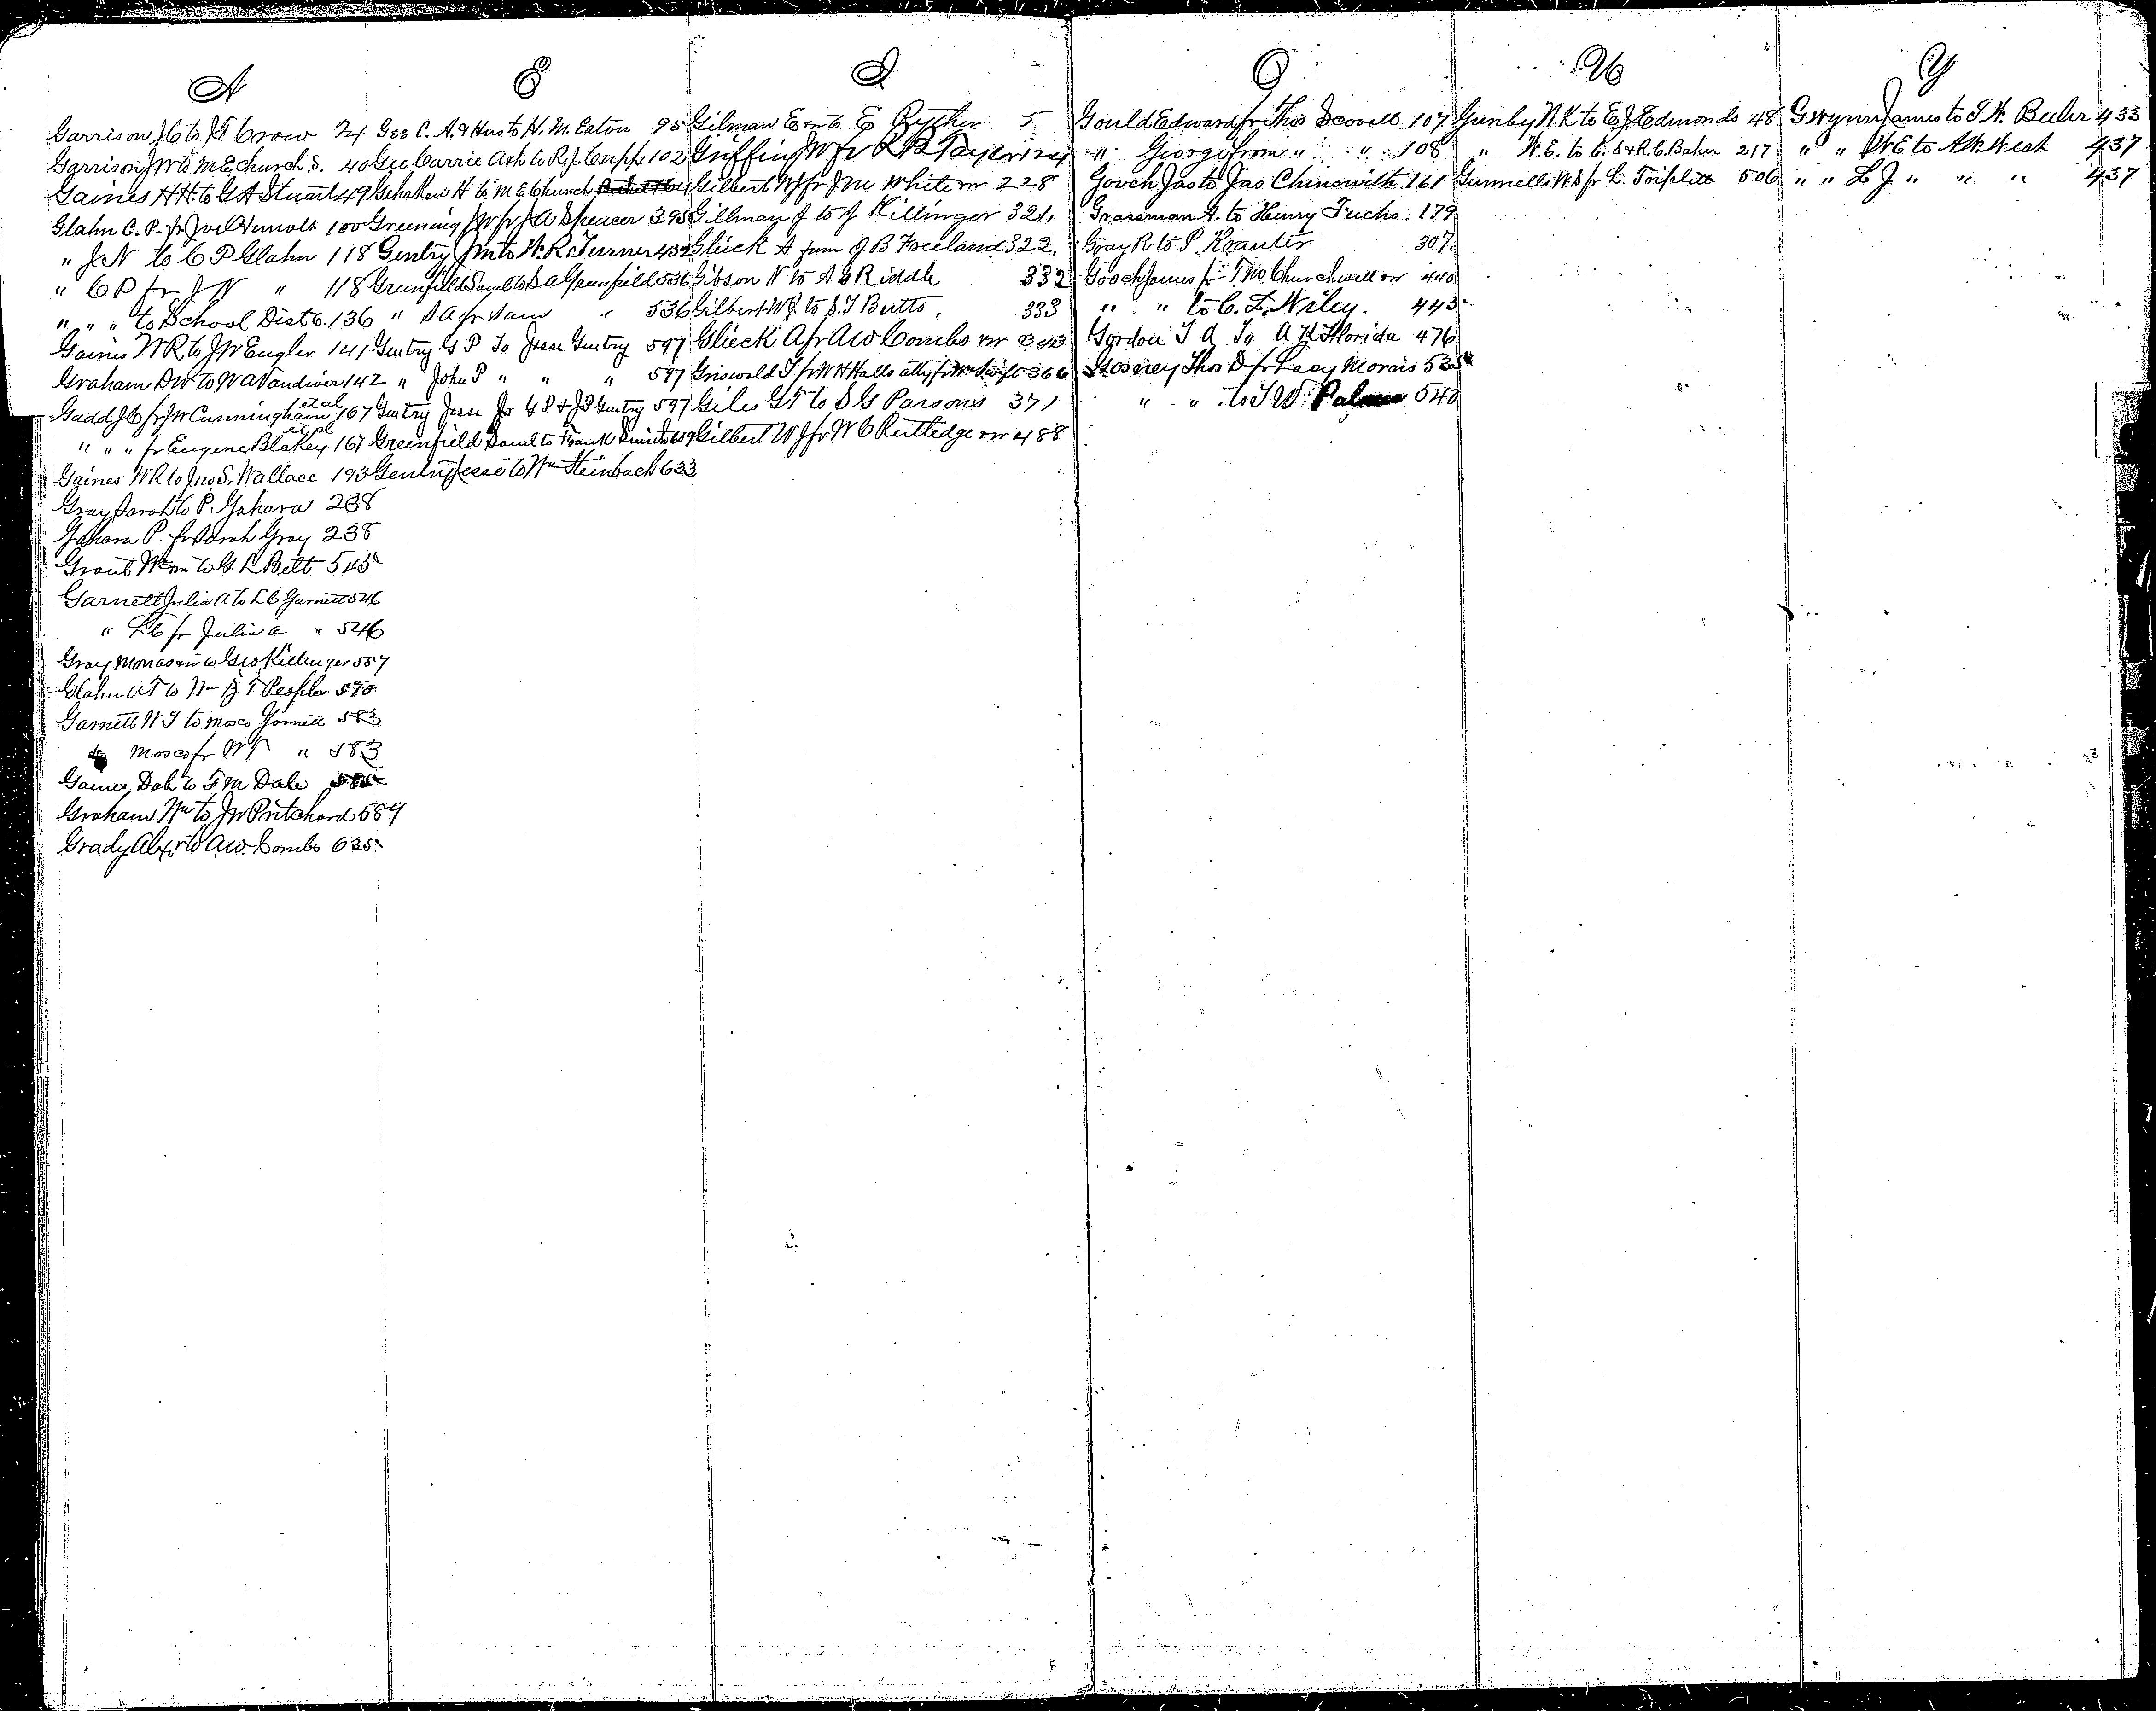 A
Garrison J C to J T Crow 24
Garrison J W to M E Church. S. 40
Gaines H H. to G A Stuart 49
Glahn C. P. fr Joel 100
" J N to C P Glahn 118
" C P fr J N " 118
" " " to School Dist 6. 136
Gaines W R to J W Engler 141
Graham D W to W A Vandiver 142
Gadd J C fr J W Cunningham et al 167
" " " fr Eugene Blakey et al 167
Gaines W R to Jno S. Wallace 193
Gray Sarah to P. Gahara 238
Gahara P. fr Sarah Gray 238
Grant Wm to G L Belt 545
Garnett Julia A to L C Garnett 546
" L C fr Julia A " 546
Gray to Geo Killinger 557
Glahn to Wm B. T Peopler 570
Garnett W T to Moses Garnett 583
" Moses fr W T " 583
Gaines, Dab to F M Dale
Graham Wm to J W Pritchard 589
Grady Alexr to A W. Combs 635
E
Gee C. A. & Hus to H. M. Eaton 95
Gee Carrie Ash to R. J. Cupp 102
Gehrken H to M E Church
Greening J W fr J A Spencer 395
Gentry Jm to W. R. Turner 432
Greenfield Saml to S A Greenfield 536
" S A fr Sam " 536
Gentry G P To Jesse Gentry 597
" John P " " " 597
Gentry Jesse fr G P & J P Gentry 597
Greenfield Saml to Frank 609
Gentry Jesse to Wm Steinbach 633
I
Gilman E to E Ryther 5
Griffing W fr R B
Gilbert W J fr J M White 228
Gillman J to J Killinger 321
Glieck A from J B Freeland 322
Gibson W to A B Riddle 332
Gilbert W J. to S. T Butts, 333
Glieck A fr A W Combs 343
Griswold J fr W H Halls atty f Wm Swift 366
Giles G T to S G Parsons 371
Gilbert W J fr W C Rutledge 488
O
Gould Edward fr Thos Scovell 107
" George from " " 108
Gooch Jas to Jas Chinowith 161
Grassman A. to Henry Fuchs. 179
Gray R to P Krauter 307
Gooch James fr T M Churchwell 440
" " to C. L. Wiley. 443
Gordon J A To A H Florida 476
Thos D fr Lacy Morris 535
" " to J W Palmer 540
U
Gunby W. K to E J. Edmonds 48
" W. E. to C. S & R. C. Baker 217
Gunnells W. S fr L. Triplett 506
Y
Gwynn James to J H. Buler 433
" " W E to A M West 437
" " L J " " " 437